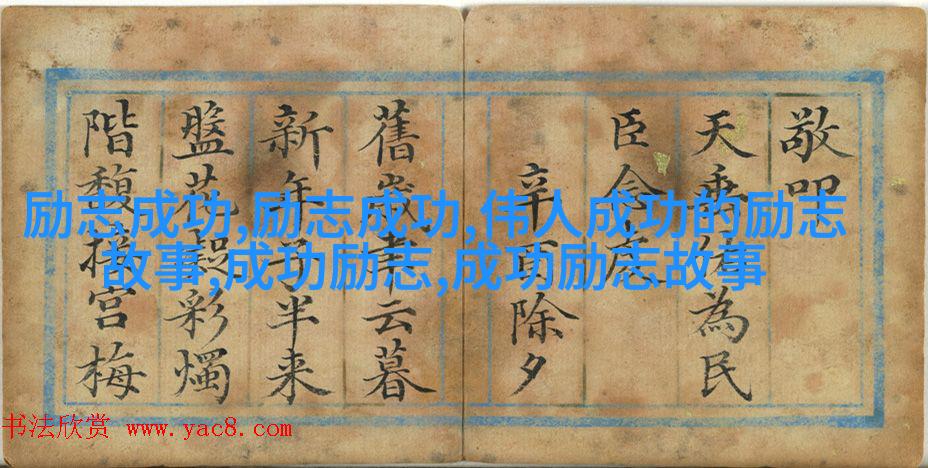 敬叩
天垂佑為民
臣念
辛酉除夕
舊歲聿云暮
新年子半来
盤花凝彩燭
階馥接宮梅
励志成功,励志成功,伟人成功的励志
故事,成功励志,成功励志故事
书法欣赏 www.yac8.com